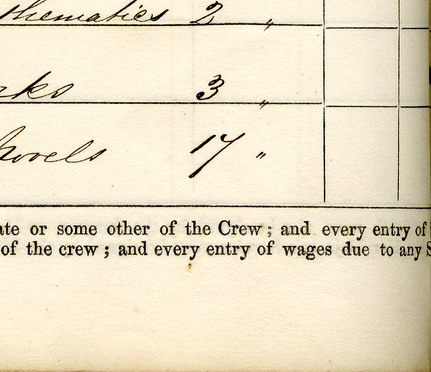 thematics 2 "
rks 3 "
Novels 17 "
ate or some other of the Crew; and every entry of
of the crew; and every entry of wages due to any S